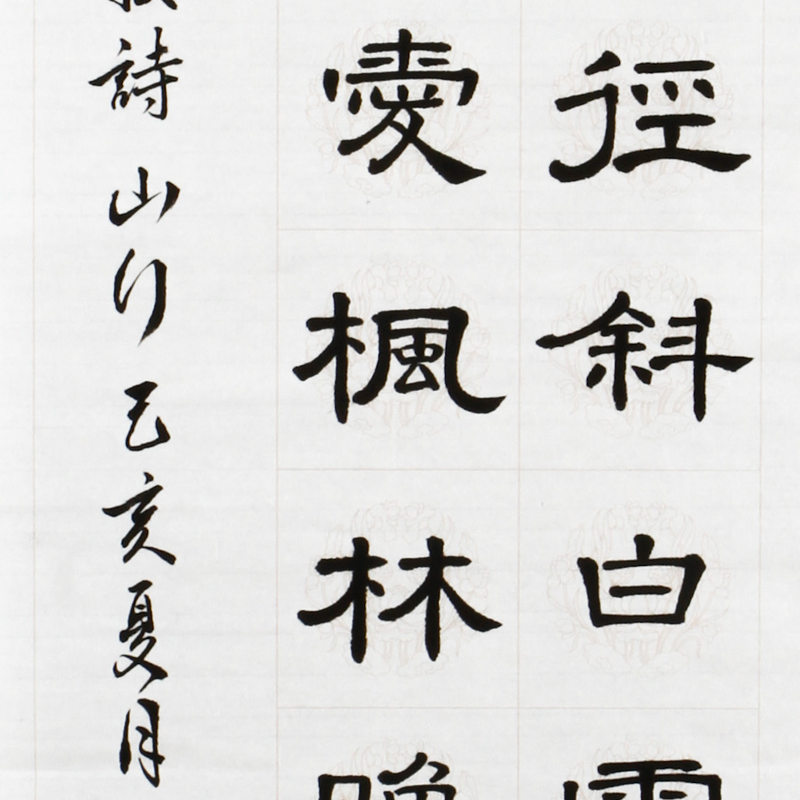 徑斜白雲
愛楓林晚
詩山行己亥夏月